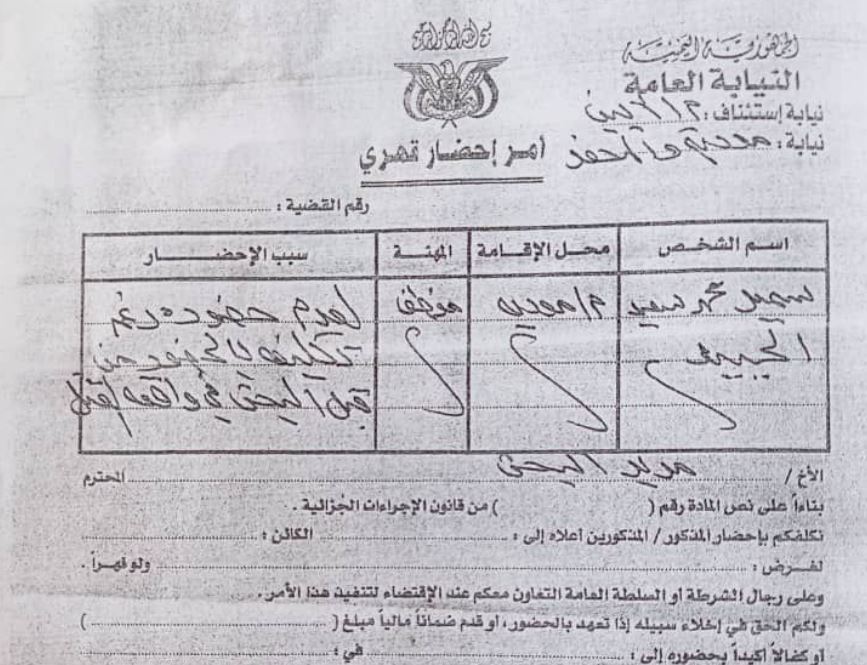 الجمهورية اليمنية
النيابة العامة
نيابة إستئناف : م/ أبين
نيابة : مودية والمحفد
أمر إحضار قهري
رقم القضية :
اسم الشخص
محل الإقامة
المهنة
سبب الإحضار
سعيد محمد سعيد
م/ مودية
موظف
لعدم حضوره رغم
تكليفه بالحضور من
قبل البحث في واقعة القتل
الأخ / مدير البحث المحترم
بناءاً على نص المادة رقم ( ) من قانون الإجراءات الجزائية .
نكلفكم بإحضار المذكور / المذكورين أعلاه إلى : الكائن :
لغرض : ولو قهراً .
وعلى رجال الشرطة أو السلطة العامة التعاون معكم عند الإقتضاء لتنفيذ هذا الأمر .
ولكم الحق في إخلاء سبيله إذا تعهد بالحضور ، أو قدم ضماناً مالياً مبلغ ( )
أو كفالاً أكيداً بحضوره إلى : في :